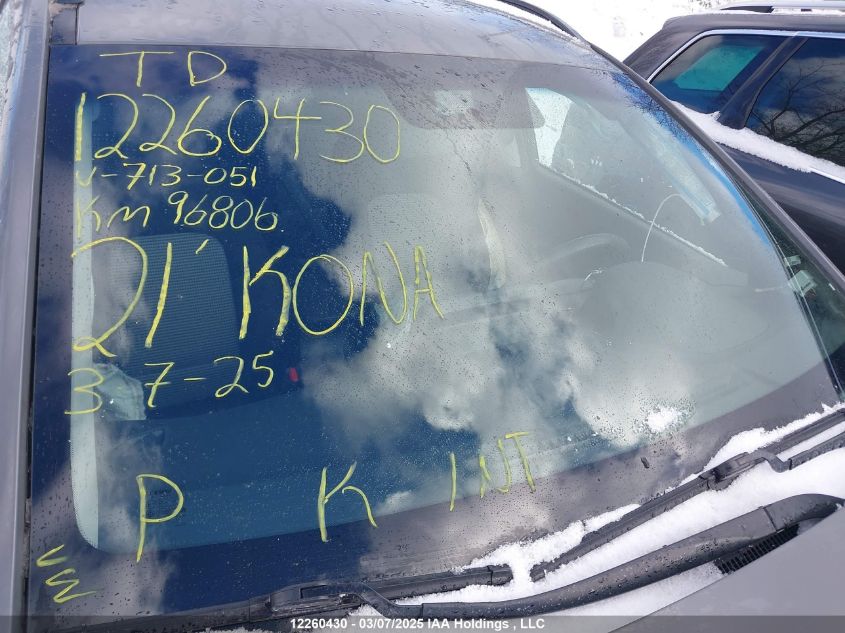 TD
12260430
V-713-051
KM 96806
21' KONA
3-7-25
P K INT
12260430 - 03/07/2025 IAA Holdings , LLC